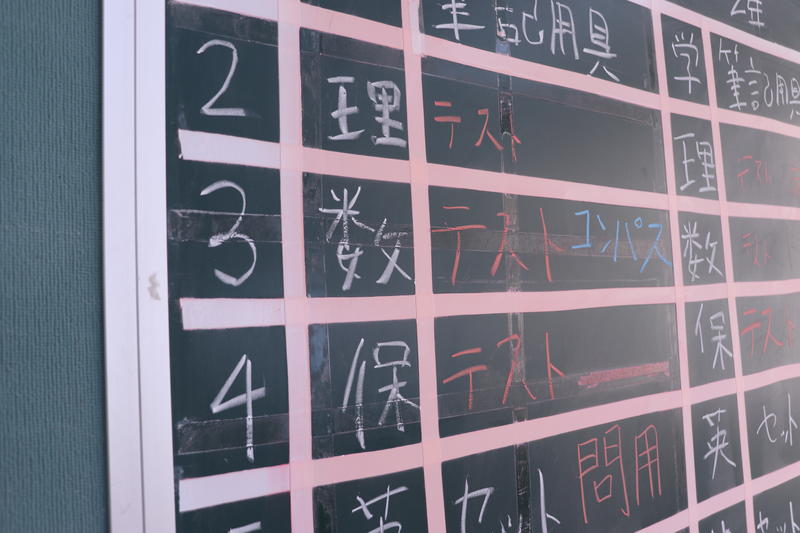 筆記用具 学 筆記用具
2 理 テスト 理 テスト
3 数 テスト コンパス 数 テスト
4 保 テスト 保 テスト
英 セット 問用 英 セット